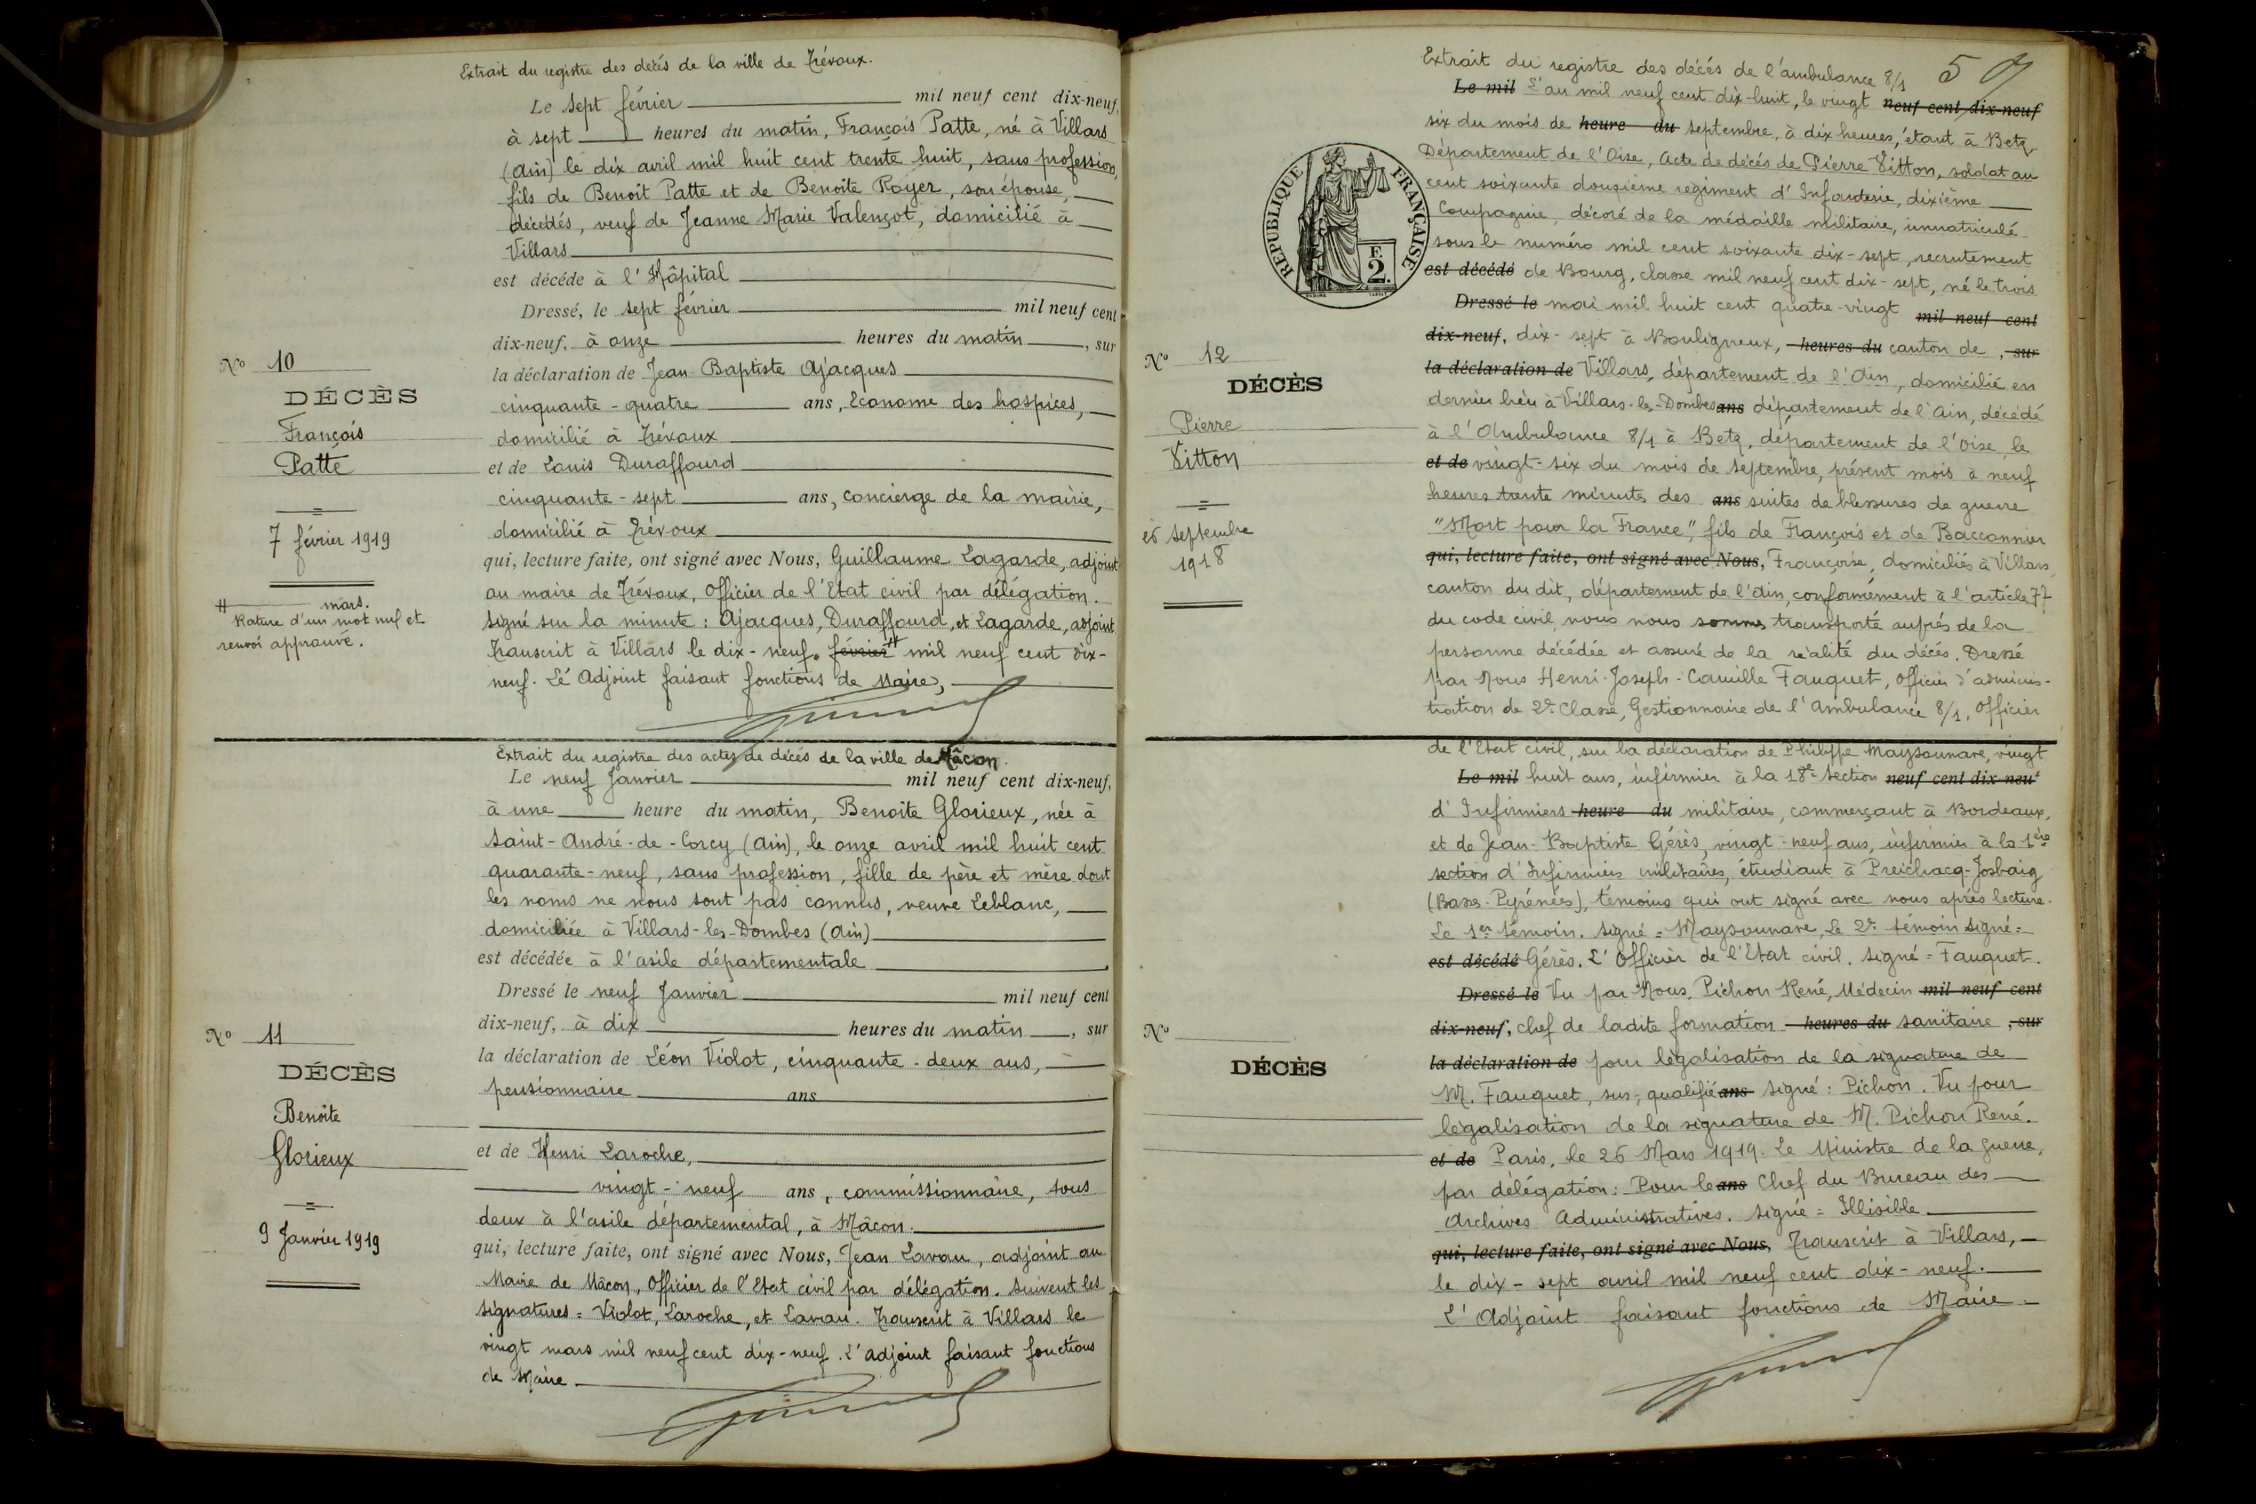 Extrait du registre des décés de la ville de Trévoux.
Le sept février mil neuf cent dix-neuf,
à sept heures du matin, François Patte, né à Villars
(Ain) le dix avril mil huit cent trente huit, sans profession,
fils de Benoit Patte et de Benoite Royer, son épouse,
décédés, veuf de Jeanne Marie Valençot, domicilié à
Villars
est décéde à l'Hôpital
Dressé, le sept février mil neuf cent
dix-neuf, à onze heures du matin, sur
la déclaration de Jean Baptiste Ajacques
cinquante-quatre ans, Econome des hospices,
domicilié à Trévoux
et de Louis Duraffourd
cinquante-sept ans, concierge de la mairie,
domicilié à Trévoux
qui, lecture faite, ont signé avec Nous, Guillaume Lagarde, adjoint
au maire de Trévoux, Officier de l'Etat civil par délégation.
Signé sur la minute : Ajacques, Duraffourd, et Lagarde, adjoint
Transcrit à Villars le dix-neuf février # mil neuf cent dix-
neuf. Lé Adjoint faisant fonctions de Maire,
No 10
DÉCÈS
François
Patte
7 février 1919
# mars.
Rature d'un mot nul et
renvoi approuvé.
Extrait du registre des actes de décés de la ville de Mâcon.
Le neuf Janvier mil neuf cent dix-neuf,
à une heure du matin, Benoite Glorieux, née à
Saint-André-de-Corcy (Ain), le onze avril mil huit cent
quarante-neuf, sans profession, fille de père et mère dont
les noms ne nous sont pas connus, veuve Leblanc,
domiciliée à Villars-les-Dombes (Ain)
est décédée à l'asile départementale
Dressé le neuf Janvier mil neuf cent
dix-neuf, à dix heures du matin, sur
la déclaration de Léon Violot, cinquante-deux ans,
pensionnaire ans
et de Henri Laroche,
vingt-neuf ans, commissionnaire, tous
deux à l'asile départemental, à Mâcon.
qui, lecture faite, ont signé avec Nous, Jean Lavau, adjoint au
Maire de Mâcon, Officier de l'Etat civil par délégation. Suivent les
signatures = Violot, Laroche, et Lavau. Transcrit à Villars le
vingt mars mil neuf cent dix-neuf. L'adjoint faisant fonctions
de Maire.
No 11
DÉCÈS
Benoite
Glorieux
9 Janvier 1919
Extrait du registre des décés de l'ambulance 8/1
Le mil L'an mil neuf cent dix-huit, le vingt neuf cent dix-neuf
six du mois de heure du septembre, à dix heures, étant à Betz
Département de l'Oise, Acte de décés de Pierre Vitton, soldat au
cent soixante douzième régiment d'Infanterie, dixième
Compagnie, décoré de la médaille militaire, immatriculé
sous le numéro mil cent soixante dix-sept, recrutement
est décédé de Bourg, classe mil neuf cent dix-sept, né le trois
Dressé le mai mil huit cent quatre-vingt mil neuf cent
dix-neuf, dix-sept à Bouligneux, heures du canton de, sur
la déclaration de Villars, département de l'Ain, domicilié en
dernier lieu à Villars-les-Dombes ans département de l'Ain, décédé
à l'Ambulance 8/1 à Betz, département de l'Oise, le
et de vingt-six du mois de septembre, présent mois à neuf
heures trente minutes des ans suites de blessures de guerre
"Mort pour la France", fils de François et de Bacconnier
qui, lecture faite, ont signé avec Nous, Françoise, domiciliés à Villars,
canton du dit, département de l'Ain, conformément à l'article 77
du code civil nous nous sommes transporté auprés de la
personne décédée et assuré de la réalité du décés. Dressé
par Nous Henri-Joseph-Camille Fauquet, Officier d'adminis-
tration de 2e Classe, Gestionnaire de l'Ambulance 8/1, Officier
de l'Etat civil, sur la déclaration de Philippe Maysounave, vingt
Le mil huit ans, infirmier à la 18e Section neuf cent dix-neuf
d'Infirmiers heure du militaire, commerçant à Bordeaux,
et de Jean-Baptiste Gérès, vingt-neuf ans, infirmier à la 1ère
section d'Infirmiers militaires, étudiant à Preichacq-Josbaig
(Basses-Pyrénées), témoins qui ont signé avec nous aprés lecture.
Le 1er témoin. signé = Maysounave, Le 2e témoin signé =
est décédé Gérès. L'Officier de l'Etat civil. signé = Fauquet.
Dressé le Vu par Nous, Pichon René, Médecin mil neuf cent
dix-neuf, chef de ladite formation heures du sanitaire, sur
la déclaration de pour légalisation de la signature de
M. Fauquet, sus-qualifié ans signé : Pichon. Vu pour
légalisation de la signature de M. Pichon René.
et de Paris, le 26 Mars 1919. Le Ministre de la guerre,
par délégation : Pour le ans Chef du Bureau des
Archives Administratives. signé = Illisible
qui, lecture faite, ont signé avec Nous, Transcrit à Villars,
le dix-sept avril mil neuf cent dix-neuf.
L'Adjoint faisant fonctions de Maire
RÉPUBLIQUE FRANÇAISE
F.
2.
No 12
DÉCÈS
Pierre
Vitton
septembre
1918
No
DÉCÈS